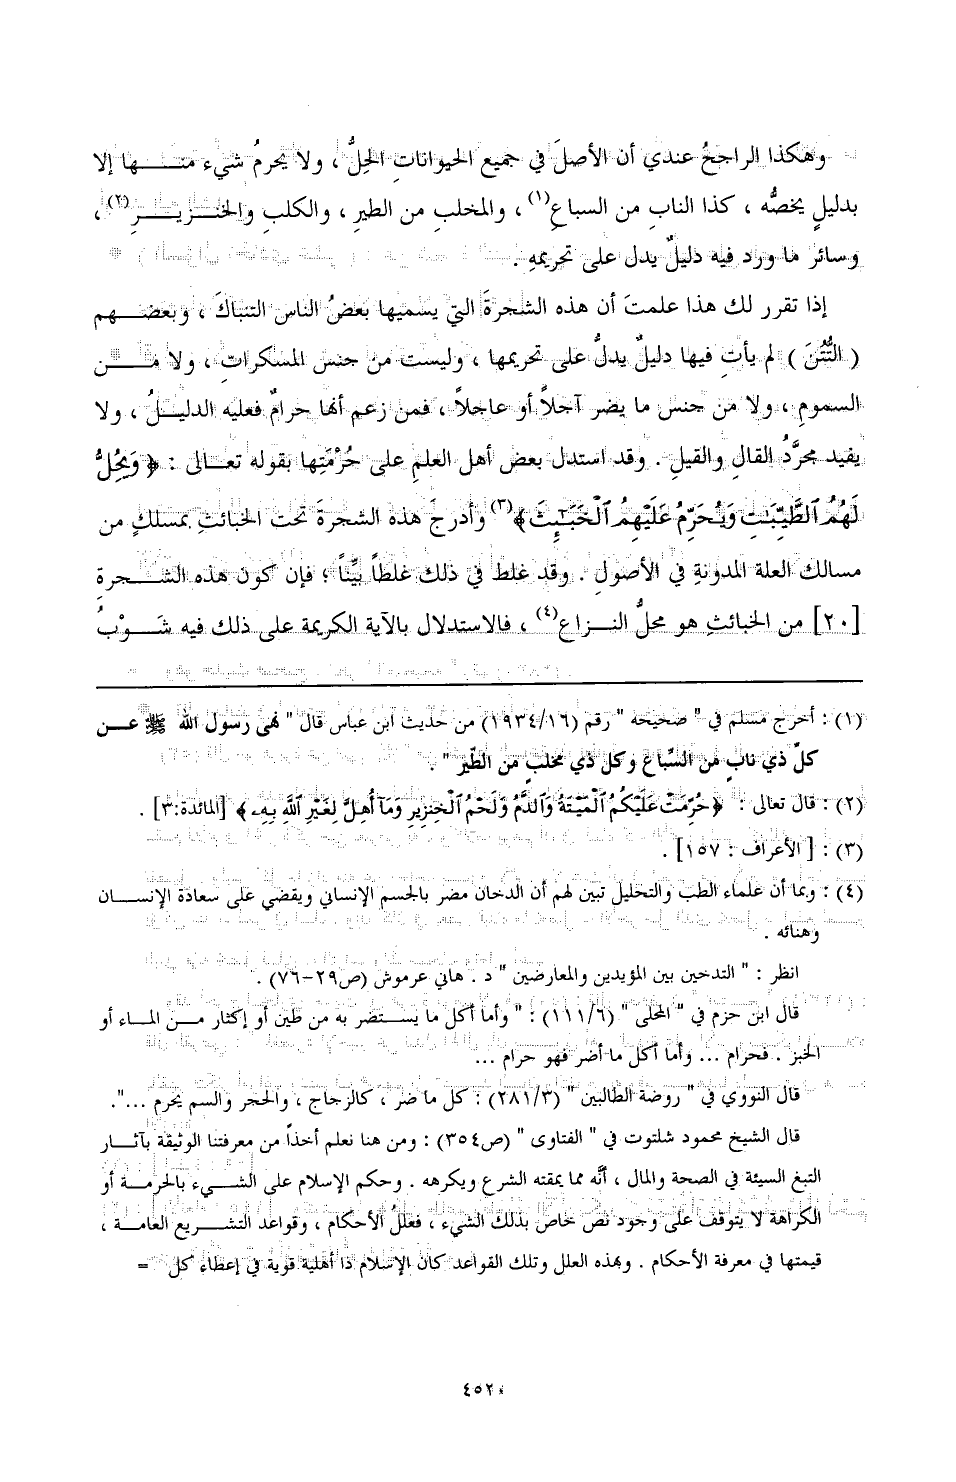 وهكذا الراجحُ عندي أن الأصلَ في جميع الحيواناتِ الحِلُّ ، ولا يحرمُ شيء منـــها إلا
بدليلٍ يخصُّه ، كذا الناب من السباعِ(١) ، والمخلب من الطير ، والكلب والخنـزيــرِ(٢) ،
وسائر ما ورد فيه دليلٌ يدل على تحريمهِ .
إذا تقرر لك هذا علمتَ أن هذه الشجرةَ التي يسميها بعضُ الناس التنباكَ ، وبعضـهم
( التُّتُنَ ) لم يأتِ فيها دليلٌ يدلُّ على تحريمها ، وليست من جنس المسكراتِ ، ولا مــن
السمومِ ، ولا من جنس ما يضر آجلاً أو عاجلاً ، فمن زعم أنها حرامٌ فعليه الدليــلُ ، ولا
يفيد مجرَّدُ القال والقيلِ . وقد استدل بعض أهل العلمِ على حُرْمَتِها بقوله تعــالى : ﴿ وَيُحِلُّ
لَهُمُ ٱلطَّيِّبَـٰتِ وَيُحَرِّمُ عَلَيْهِمُ ٱلْخَبَـٰٓئِثَ﴾(٣) وأدرجَ هذه الشجرةَ تحت الخبائثِ بمسلكٍ من
مسالك العلة المدونةِ في الأصولِ . وقد غلط في ذلك غلطاً بيِّناً ؛ فإن كون هذه الشــجرة
[٢٠] من الخبائثِ هو محلُّ النــزاعِ(٤) ، فالاستدلال بالآية الكريمة على ذلك فيه شَــوْبُ
(١) : أخرج مسلم في " صحيحه " رقم (١٦/١٩٣٤) من حديث ابن عباس قال " نهى رسول الله ﷺ عـن
كلّ ذي نابٍ من السِّباع وكل ذي مخلبٍ من الطّير " .
(٢) : قال تعالى : ﴿حُرِّمَتْ عَلَيْكُمُ ٱلْمَيْتَةُ وَٱلدَّمُ وَلَحْمُ ٱلْخِنزِيرِ وَمَآ أُهِلَّ لِغَيْرِ ٱللَّهِ بِهِۦ﴾ [المائدة:٣] .
(٣) : [ الأعراف : ١٥٧] .
(٤) : وبما أن علماء الطب والتحليل تبين لهم أن الدخان مضر بالجسم الإنساني ويقضي على سعادة الإنســان
وهنائه .
انظر : " التدخين بين المؤيدين والمعارضين " د . هاني عرموش (ص٢٩-٧٦) .
قال ابن حزم في " المحلى " (١١١/٦) : " وأما أكل ما يســتضر به من طين أو إكثار مــن المــاء أو
الخبز . فحرام ... وأما أكل ما أضر فهو حرام ...
قال النووي في " روضة الطالبين " (٢٨١/٣) : كل ما ضر ، كالزجاج ، والحجر والسم يحرم ...".
قال الشيخ محمود شلتوت في " الفتاوى " (ص٣٥٤) : ومن هنا نعلم أخذاً من معرفتنا الوثيقة بآثــار
التبغ السيئة في الصحة والمال ، أنَّه مما يمقته الشرع ويكرهه . وحكم الإسلام على الشــيء بالحرمــة أو
الكراهة لا يتوقف على وجود نص خاص بذلك الشيء ، فعللُ الأحكام ، وقواعد التشــريع العامــة ،
قيمتها في معرفة الأحكام . وبهذه العلل وتلك القواعد كان الإسلام ذا أهلية قوية في إعطاء كل =
٤٥٢